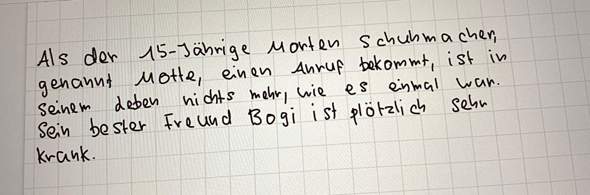 Als der 15-Jährige Morten Schuhmacher,
genannt Motte, einen Anruf bekommt, ist in
seinem Leben nichts mehr, wie es einmal war.
Sein bester Freund Bogi ist plötzlich sehr
krank.